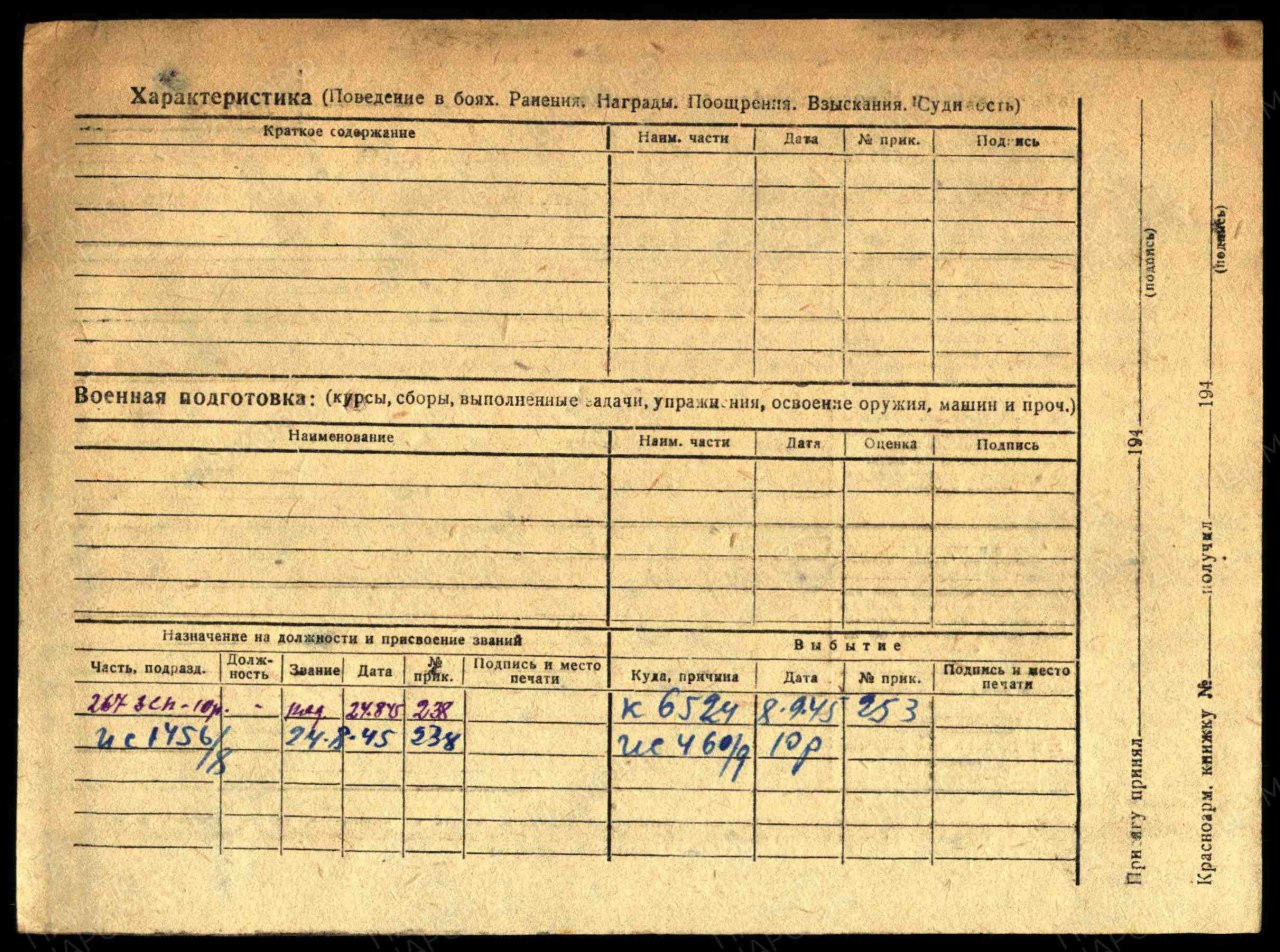 Характеристика (Поведение в боях. Ранения. Награды. Поощрения. Взыскания. Судимость)
Краткое содержание Наим. части Дата № прик. Подпись
Военная подготовка: (курсы, сборы, выполненные задачи, упражнения, освоение оружия, машин и проч.)
Наименование Наим. части Дата Оценка Подпись
Назначение на должности и присвоение званий Выбытие
Часть, подразд. Должность Звание Дата № прик. Подпись и место печати Куда, причина Дата № прик. Подпись и место печати
267 зсп - 10р. - ряд. 24.8.45 238 к 6524 8.9.45 253
ис 1456/8 24.8.45 238 ис 460/9 10р
Присягу принял 194 (подпись)
Красноарм. книжку № получил 194 (подпись)